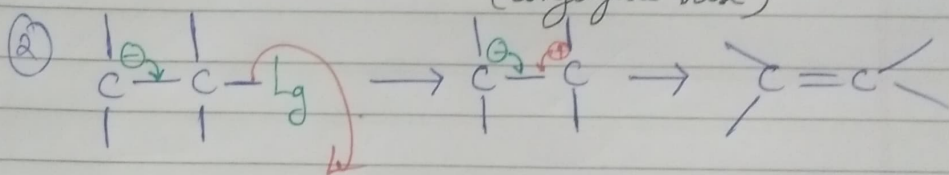 ②
C⊖ — C — Lg ⟶ C⊖ — C⊕ ⟶ C = C